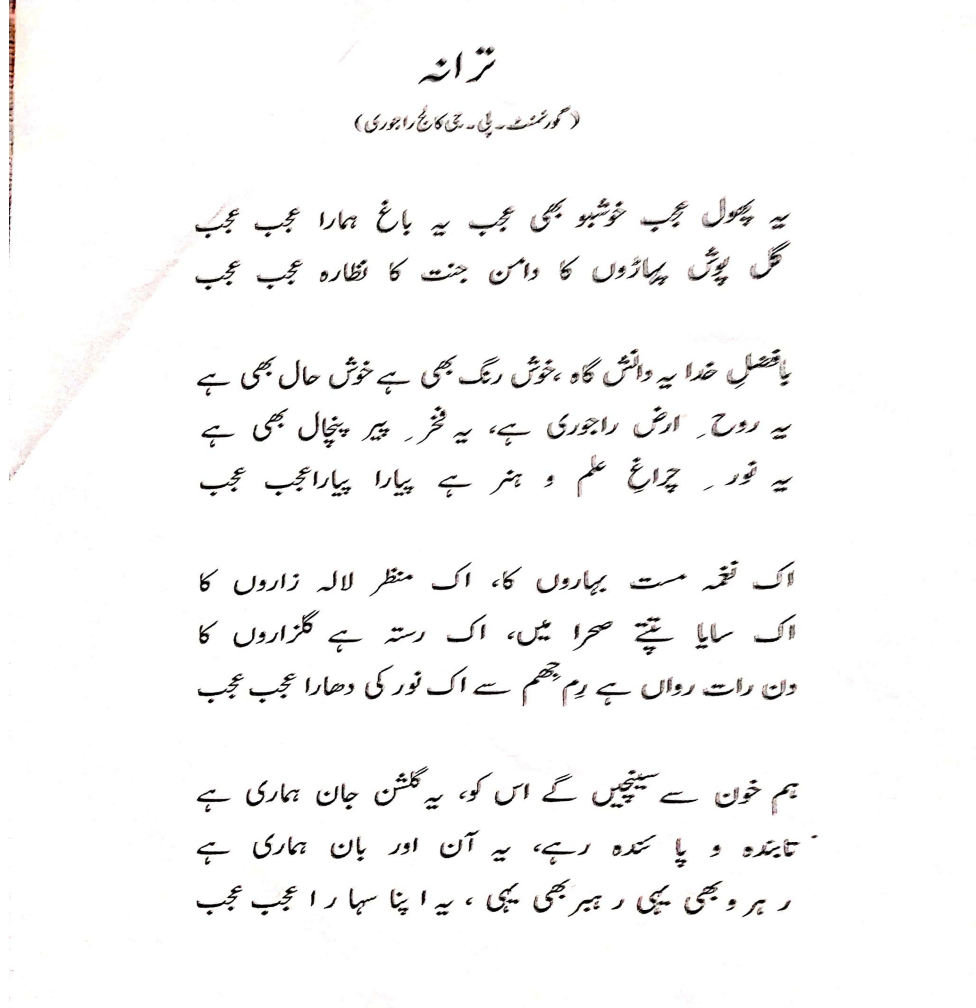 ترانہ
(گورنمنٹ۔ پی۔ جی کالج راجوری)
یہ پھول عجب خوشبو بھی عجب یہ باغ ہمارا عجب عجب
گل پوش پہاڑوں کا دامن جنت کا نظارہ عجب عجب
بافضلِ خدا یہ دانش گاہ ،خوش رنگ بھی ہے خوش حال بھی ہے
یہ روحِ ارض راجوری ہے، یہ فخرِ پیر پنچال بھی ہے
یہ نورِ چراغِ علم و ہنر ہے پیارا پیارا عجب عجب
اک نغمہ مست بہاروں کا، اک منظر لالہ زاروں کا
اک سایا تپتے صحرا میں، اک رستہ ہے گلزاروں کا
دن رات رواں ہے رِم جھم سے اک نور کی دھارا عجب عجب
ہم خون سے سینچیں گے اس کو، یہ گلشن جان ہماری ہے
تابندہ و پا ئندہ رہے، یہ آن اور بان ہماری ہے
ر ہر و بھی یہی ر ہبر بھی یہی ، یہ ا پنا سہا ر ا عجب عجب